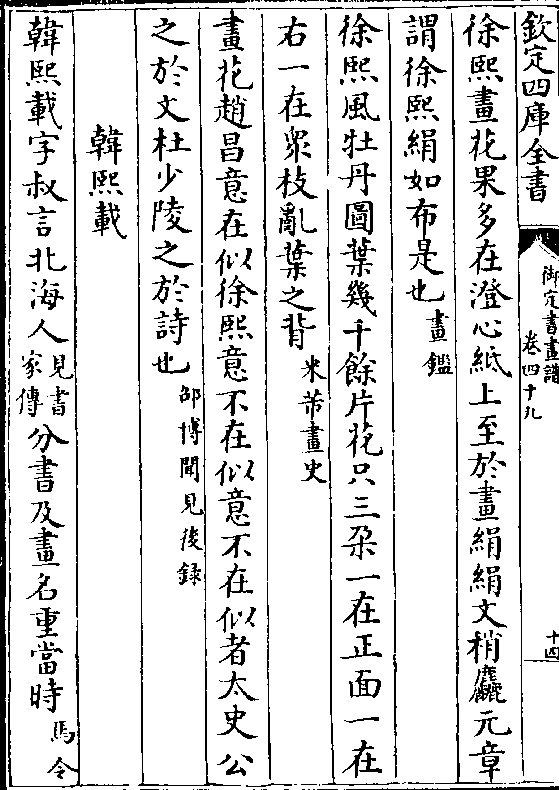 欽定四庫全書
御定書畫譜
卷四十九
十四
徐熙畫花果多在澄心紙上至於畫絹絹文稍麤元章
謂徐熙絹如布是也畫鑑
徐熙風牡丹圖葉幾千餘片花只三朶一在正面一在
右一在衆枝亂葉之背米芾畫史
畫花趙昌意在似徐熙意不在似意不在似者太史公
之於文杜少陵之於詩也邵博聞見後錄
韓熙載
韓熙載字叔言北海人見書家傳分書及畫名重當時馬令